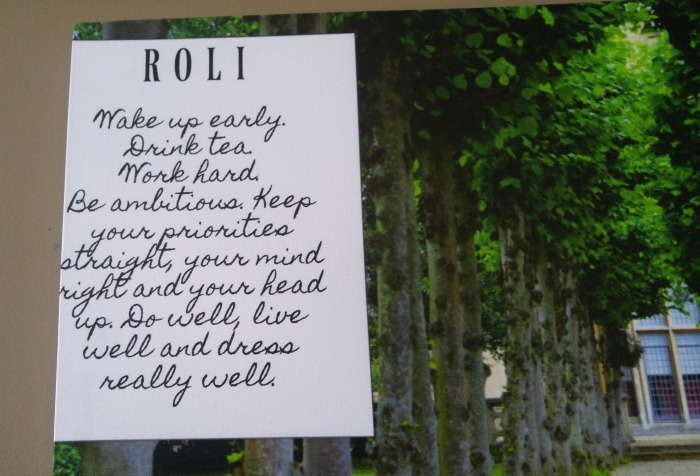 ROLI
Wake up early.
Drink tea.
Work hard.
Be ambitious. Keep
your priorities
straight, your mind
right and your head
up. Do well, live
well and dress
really well.